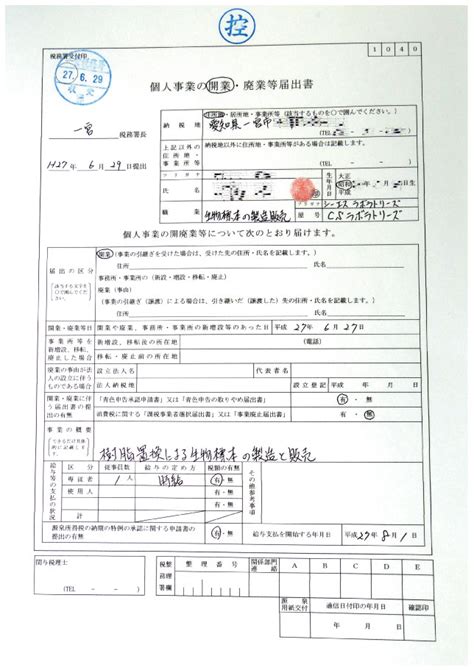 控
税務署受付印
27.6.29
1040
個人事業の開業・廃業等届出書
一宮 税務署長
H27年 6月 29日提出
納税地
住所地・居所地・事業所等(該当するものを○で囲んでください。)
愛知県一宮市
(TEL
上記以外の住所地・事業所等
納税地以外に住所地・事業所等がある場合は記載します。
(TEL
フリガナ
氏名
生年月日
大正
昭和
年 月 日生
職業
生物標本の製造販売
フリガナ
シーエスラボラトリーズ
屋号
C.S.ラボラトリーズ
個人事業の開廃業等について次のとおり届けます。
届出の区分
該当する文字を○で囲んでください。
開業(事業の引継ぎを受けた場合は、受けた先の住所・氏名を記載します。)
住所 氏名
事務所・事業所の(新設・増設・移転・廃止)
廃業(事由)
(事業の引継ぎ(譲渡)による場合は、引き継いだ(譲渡した)先の住所・氏名を記載します。)
住所 氏名
開業・廃業等日
開業や廃業、事務所・事業所の新増設等のあった日 平成 27年 6月 27日
事業所等を新増設、移転、廃止した場合
新増設、移転後の所在地 (電話)
移転・廃止前の所在地
廃業の事由が法人の設立に伴うものである場合
設立法人名 代表者名
法人納税地 設立登記 平成 年 月 日
開業・廃業に伴う届出書の提出の有無
「青色申告承認申請書」又は「青色申告の取りやめ届出書」 有・無
消費税に関する「課税事業者選択届出書」又は「事業廃止届出書」 有・無
事業の概要
できるだけ具体的に記載します。
樹脂置換による生物標本の製造と販売
給与等の支払の状況
区分 従事員数 給与の定め方 税額の有無
専従者 1人 時給 有・無
使用人 有・無
計
その他参考事項
源泉所得税の納期の特例の承認に関する申請書の提出の有無 有・無
給与支払を開始する年月日 平成27年8月1日
関与税理士
(TEL - - )
税務署整理欄
整理番号
関係部門連絡
A B C D E
源泉用紙交付
通信日付印の年月日
確認印
年 月 日